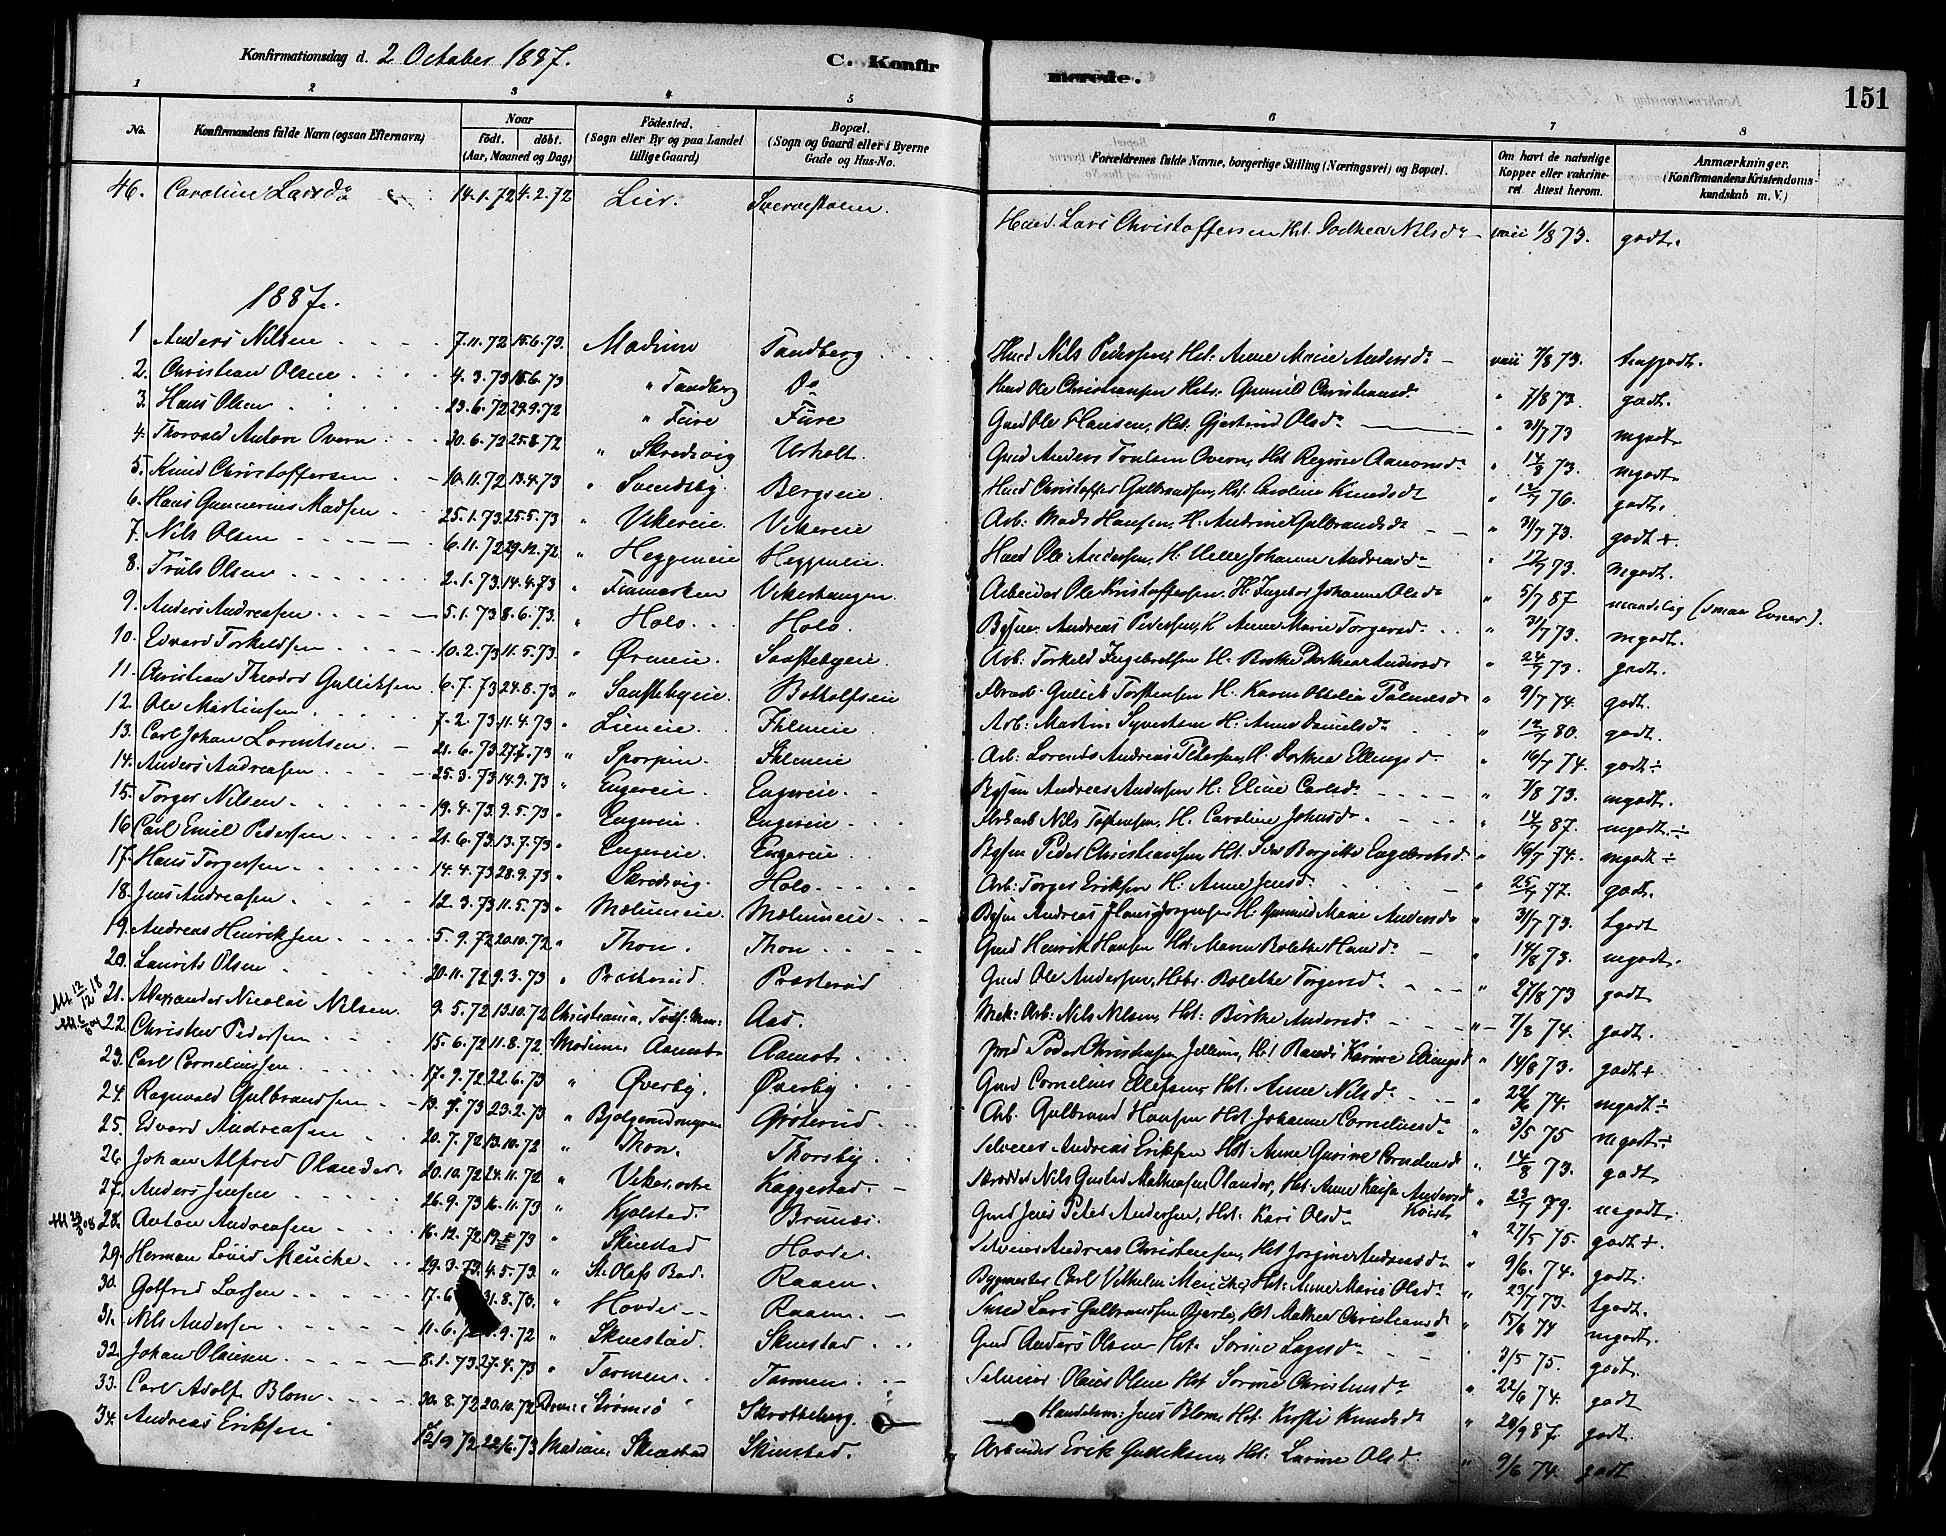 Konfirmationsdag d. 2 October 1887. C. Konfirmerede. 151
1 2 3 4 5 6 7 8
No. Konfirmandens fulde Navn (ogsaa Efternavn) Naar Födt. döbt. (Aar, Maaned og Dag) Födested. (Sogn eller By og paa Landet tillige Gaard) Bopæl. (Sogn og Gaard eller i Byerne Gade og Hus-No. Forældrenes fulde Navne, borgerlige Stilling (Næringsvei) og Bopæl. Om havt de naturlige Kopper eller vakcineret. Attest herom. Anmærkninger. (Konfirmandens Kristendomskundskab m. V.)
46. Caroline Larsdr 14.1.72 4.2.72 Lier. Hmd. Lars Christoffersen Hst. Dorthea Nilsdr vac 1/8 73. godt.
1887.
1 Anders Nilsen 7.11.72 15.6.73. Modum Tandberg Hmd Nils Pedersen, Hst: Anne Marie Andersdr vac 7/8 73. tgodt.
2. Christian Olsen 4.3.73 15.6.73 " Tandberg Do Hmd Ole Christiansen Hst. Gunnild Christiansdr " 7/8 73. godt.
3. Hans Olsen 23.6.72 29.9.72 " Fure Fure Gmd Ole Hansen, Hst. Gjertrud Olsdr " 31/7 73 mgodt
4. Thorvald Anton Overn 30.6.72 25.8.72 " Skredsvig Urholt. Gmd Anders Trulsen Overn, Hst Regine Aanonsdr " 14/8 73. mgodt.
5. Knud Christoffersen 10.11.72 13.4.73 " Svendsby. Bergseie. Hmd Christoffer Gulbrandsen, Hst. Caroline Knudsdr " 12/7 76. godt.
6. Hans Gunnerius Madsen 25.1.73. 25.5.73 " Vikereie. Vikereie Arb: Mads Hansen, H. Andrine Gulbrandsdr " 31/7 73. godt +
7. Nils Olsen 6.11.72 29.12.72. " Heggeneie Heggeneie. Hmd Ole Andersen, H. Johanne Andreasdr " 12/7 73. mgodt.
8. Truls Olsen 2.1.73. 14.4.73 " Finmarken Vikerhaugen. Arbeider Ole Kristoffersen, H. Ingebor Johanne Olsdr " 5/7 87 maadelig (smaa Evner).
9. Anders Andreasen 5.1.73 8.6.73. " Holo Holo. Bgsm. Andreas Pedersen, H. Anne Marie Torgersdr " 31/7 73. mgodt.
10. Edvard Torkeldsen 10.2.73 11.5.73 " Øreneie. Sønstebyeie. Arb: Torkeld Ingebretsen H. Berthe Dorthea Andersdr " 24/7 73. godt.
11. Christian Theodor Gulliksen 6.7.73 24.8.73 " Sønstebyeie. Bottolfseie Gulik Torstensen H. Karen Ottelia Palmesdr " 9/7 74. godt.
12. Ole Martinsen 7.2.73. 11.4.73 " Lieneie. Ihleneie. Arb: Martin Syvertsen H: Anne Danielsdr " 12/7 80. godt.
13. Carl Johan Lorentsen 21.6.73 27.7.73 " Sporpin. Ihleneie Arb: Lorents Andreas Petersen, H. Dorthea Ellingsdr " 16/7 74. godt ÷
14. Anders Andreasen 25.3.73 14.9.73 " Engereie. Engereie. Bgsm Andreas Andersen H. Eline Carlsdr " 7/8 73. mgodt.
15. Torger Nilsen 19.4.73 9.5.73 " Engereie. Engereie Nils Tostensen, H. Caroline Johnsdr " 14/7 87. mgodt ÷
16 Carl Emil Pedersen 21.6.73 13.7.73 " Engereie. Engereie. Bgsm Peder Christiansen Hst. Borgitte Engebretsdr " 16/7 74. mgodt ÷
17. Hans Torgersen 14.4.73 28.9.73 " Skredsvig. Holo Arb: Torger Eriksen H: Anne Jensdr " 25/7 77. godt.
18. Jens Andreasen 12.3.73 11.5.73 " Mælumeie. Mælumeie Bgsm Andreas Hansjørgensen H: Gunnild Marie Andersdr " 31/7 73. tgodt
19. Andreas Henriksen 5.9.72 20.10.72 " Thon. Thon Gmd Henrik Hansen Hst. Maren Bolette Hansdr " 14/8 73. mgodt.
20. Laurits Olsen 20.11.72 9.3.73 " Præsterud. Præsterud Gmd Ole Andersen, Hst. Bolette Torgersdr " 27/8 73 godt
12/12 18 21. Alexander Nicolai Nilsen 9.5.72 13.10.72 Christiania, Aas. Mek: Arb: Nils Nilsen, Hst: Birthe Andersdr " 7/8 74. godt.
22. Christen Pedersen 15.6.72 11.8.72. Modum, Aamot Aamot Peder Christensen Jellum, Hst Randi Karine Ellingsdr " 14/8 73. godt +
23. Carl Corneliussen 17.9.72 22.6.73 " Øverby. Øverby. Gmd Cornelius Ellefsen, Hst. Anne Nilsdr " 22/6 74. mgodt ÷
24. Ragnvald Gulbrandsen 13.1.73 23.2.73 " Grøterud. Arb. Gulbrand Hansen Hst Johanne Corneliusdr " 3/5 75 mgodt ÷
25. Edvard Andreasen 20.7.72 13.10.72 " Thon. Thorsby. Selveier Andreas Eriksen Hst Anne Gurine Corneliusdr " 14/8 73. godt
26. Johan Alfred Olander. 20.10.72 24.11.72 " Viker, østre Kaggestad. Skrædder Nils Gustav Olander, Hst: Anne Kaisa Andersdr " 23/7 79. mgodt.
27. Anders Jensen 26.9.73 16.11.73 " Kjølstad. Brunæs. Gmd Jens Peter Andersen, Hst. Kari Olsdr " 27/5 75. godt +.
28. Anton Andreasen 16.12.72 73 " Skinstad Hovde. Selveier Andreas Christensen, Hst Jorgine Andreasdr " 9/6. 74. godt.
29. Herman Louis Meinche 29.3.73. 4.5.73. " St. Olafs Bad. Raaen. Bygmester Carl Vilhelm Meinche, Hst: Anne Marie Olsdr " 23/7 73. tgodt.
30. Gotfred Larsen 17.6 31.8.73. " Hovde Raaen. Smed Lars Gulbrandsen Bjerke, Hst Mathea Christiansdr " 15/6 74 mgodt.
31. Nils Andersen 11.6.72 .9.72 " Skinstad. Skinstad Gmd Anders Olsen Hst. Sørine Lagesdr " 3/5 75. godt.
32. Johan Olausen 8.1.73. 27.4.73 " Tormen. Tormen. Selveier Olaus Olsen Hst Sørine Christensdr " 22/6 74. godt
33. Carl Adolf Blom 30.8.72 20.10.72 Dram: Strømsø Skrotteberg. Handelsm: Jens Blom Hst. Kirsti Knudsdr " 29/9 87. godt.
34. Andreas Eriksen 12/9 72 22/6. 73 Modum, Skinstad Skinstad. Arbeider Erik Gulliksen, Hst: Lavine Olsdr " 9/6 74. godt